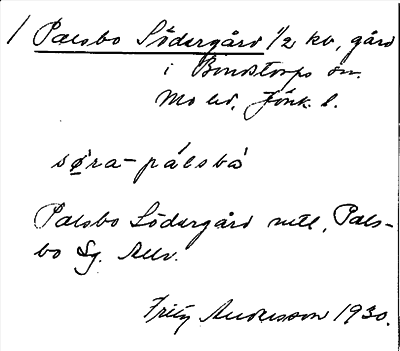 / Palsbo Södergård 1/2 kv, gård
i Bondstorps sn.
Mo hd, Jönk. l.
söra-pálsbò
Palsbo Södergård mtl, Pals-
bo Sg. Allv.
Fritz Andersson 1930.